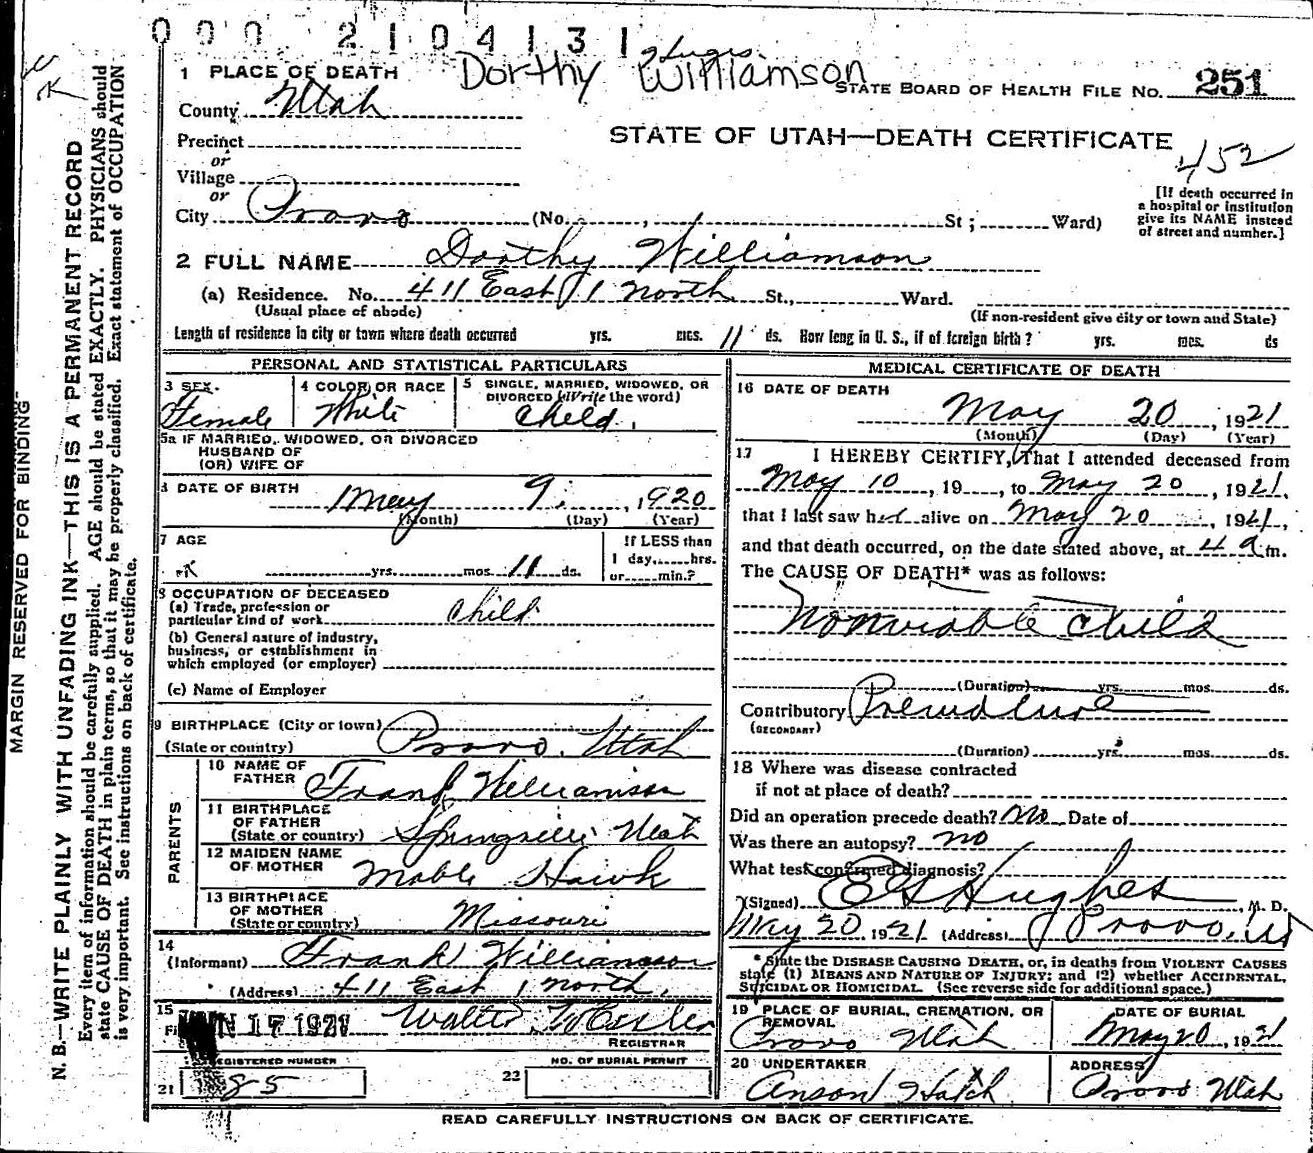 000 2104131
Dorthy Williamson
1 PLACE OF DEATH
STATE BOARD OF HEALTH FILE No. 251
County Utah
STATE OF UTAH—DEATH CERTIFICATE
452
Precinct
or
Village
or
City Provo (No. , St ; Ward)
[If death occurred in a hospital or institution give its NAME instead of street and number.]
2 FULL NAME Dorthy Williamson
(a) Residence. No. 411 East 1 North St., Ward.
(Usual place of abode) (If non-resident give city or town and State)
Length of residence in city or town where death occurred yrs. mos. 11 ds. How long in U. S., if of foreign birth? yrs. mos. ds
PERSONAL AND STATISTICAL PARTICULARS
3 SEX Female
4 COLOR OR RACE White
5 SINGLE, MARRIED, WIDOWED, OR DIVORCED (Write the word) Child.
5a IF MARRIED, WIDOWED, OR DIVORCED
HUSBAND OF
(OR) WIFE OF
DATE OF BIRTH May 9, 1920
(Month) (Day) (Year)
7 AGE yrs. mos. 11 ds.
If LESS than
1 day, hrs.
or min.?
8 OCCUPATION OF DECEASED
(a) Trade, profession or
particular kind of work Child
(b) General nature of industry,
business, or establishment in
which employed (or employer)
(c) Name of Employer
9 BIRTHPLACE (City or town) Provo, Utah
(State or country)
PARENTS
10 NAME OF FATHER Frank Williamson
11 BIRTHPLACE OF FATHER (State or country) Springville Utah
12 MAIDEN NAME OF MOTHER Mable Hawk
13 BIRTHPLACE OF MOTHER (State or country) Missouri
14
(Informant) Frank Williamson
(Address) 411 East 1 North.
15 JUN 17 1921 Walter
REGISTRAR
REGISTERED NUMBER
21 85
NO. OF BURIAL PERMIT
22
MEDICAL CERTIFICATE OF DEATH
16 DATE OF DEATH
May 20, 1921
(Month) (Day) (Year)
17 I HEREBY CERTIFY, That I attended deceased from
May 10, 19 , to May 20, 1921,
that I last saw her alive on May 20, 1921,
and that death occurred, on the date stated above, at 4 a m.
The CAUSE OF DEATH* was as follows:
Nonviable Child
(Duration) yrs. mos. ds.
Contributory Premature
(SECONDARY)
(Duration) yrs. mos. ds.
18 Where was disease contracted
if not at place of death?
Did an operation precede death? No Date of
Was there an autopsy? no
What test confirmed diagnosis?
(Signed) Hughes, M. D.
May 20 1921 (Address) Provo, Ut
* State the DISEASE CAUSING DEATH, or, in deaths from VIOLENT CAUSES
state (1) MEANS AND NATURE OF INJURY; and (2) whether ACCIDENTAL,
SUICIDAL OR HOMICIDAL. (See reverse side for additional space.)
19 PLACE OF BURIAL, CREMATION, OR REMOVAL
Provo Utah
DATE OF BURIAL
May 20, 1921
20 UNDERTAKER
Anson Hatch
ADDRESS
Provo Utah
READ CAREFULLY INSTRUCTIONS ON BACK OF CERTIFICATE.
MARGIN RESERVED FOR BINDING
N. B.—WRITE PLAINLY WITH UNFADING INK—THIS IS A PERMANENT RECORD
Every item of information should be carefully supplied. AGE should be stated EXACTLY. PHYSICIANS should
state CAUSE OF DEATH in plain terms, so that it may be properly classified. Exact statement of OCCUPATION
is very important. See instructions on back of certificate.